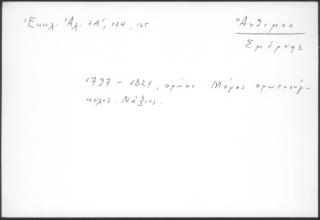 Ἐκκλ. Ἀλ. ΙΑ', 124, 125
Ἄνθιμος
Σμύρνης
1797 - 1821, πρώην Μέγας πρωτοσύγ-
κελος. Νάξιος.